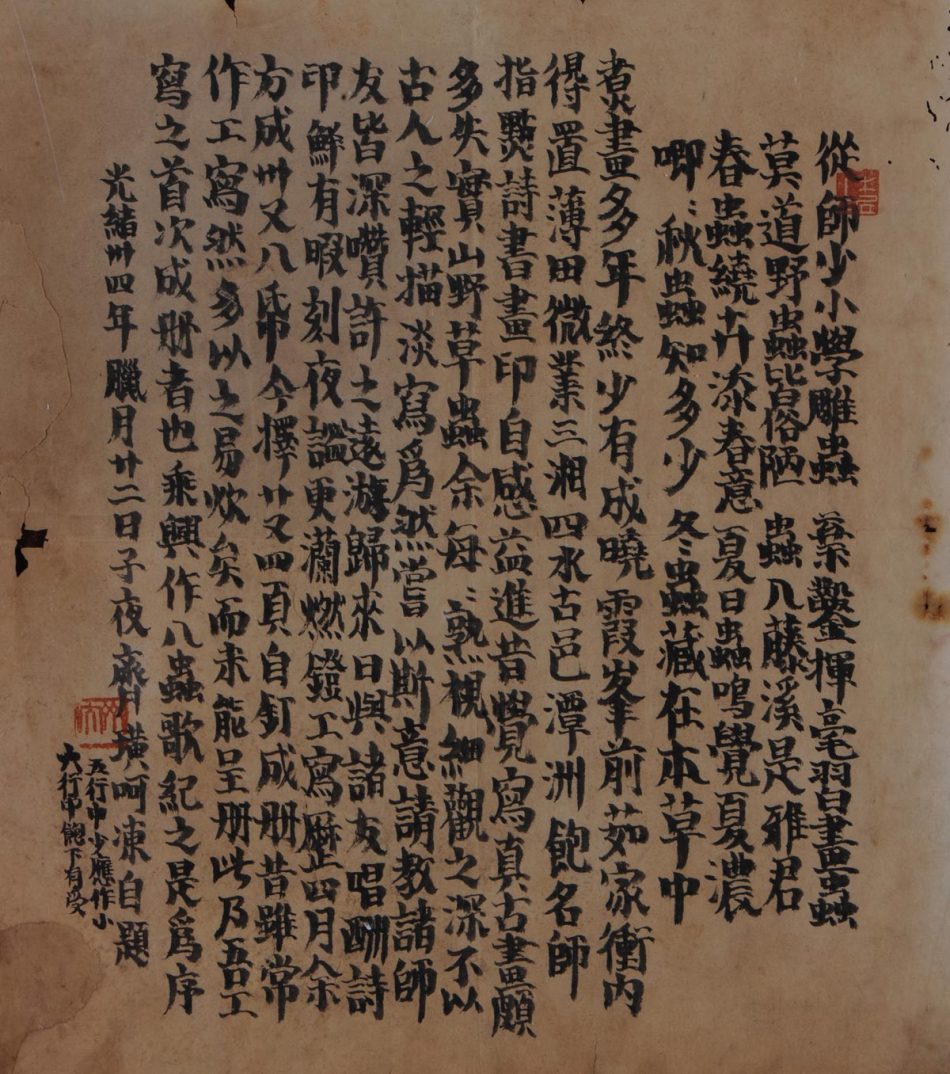 從師少小學雕蟲 棄鑿揮毫習畫蟲
莫道野蟲皆俗陋 蟲入藤溪是雅君
春蟲繞卉添春意 夏日蟲鳴覺夏濃
唧〻秋蟲知多少 冬蟲藏在本草中
煮畫多年終少有成曉霞峯前茹家衝內
得置薄田微業三湘四水古邑潭洲飽名師
指點詩書畫印自感益進昔覺寫真古畫頗
多失實山野草蟲余每〻熟視細觀之深不以
古人之輕描淡寫爲然嘗以斯意請教諸師
友皆深囋許之遠游歸來日與諸友唱酬詩
印鮮有暇刻夜謐更瀾燃鐙工寫厤四月余
方成卅又八帋今擇廿又四頁自釘成册昔雖常
作工寫然多以之易炊矣而未能呈册此乃吾工
寫之首次成册者也乘興作八蟲歌紀之是爲序
光緒卅四年臘月廿二日子夜 璜呵凍自題
五行中少應作小
六行中飽下有受